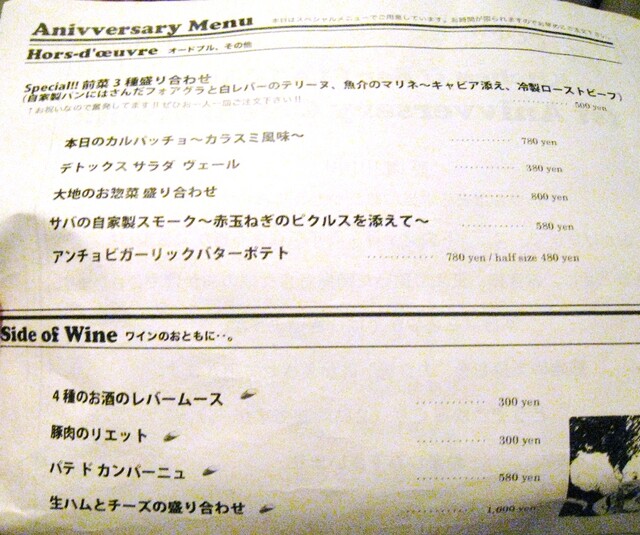 Anivversary Menu 本日はスペシャルメニューでご用意しています。お時間が限られますのでお早めにご注文下さい。
Hors-d'œuvre オードブル、その他
Special!! 前菜3種盛り合わせ
(自家製パンにはさんだフォアグラと白レバーのテリーヌ、魚介のマリネ〜キャビア添え、冷製ローストビーフ)
↑お祝いなので奮発してます!!ぜひお一人一皿ご注文下さい!! 500 yen
本日のカルパッチョ〜カラスミ風味〜 780 yen
デトックス サラダ ヴェール 380 yen
大地のお惣菜 盛り合わせ 800 yen
サバの自家製スモーク〜赤玉ねぎのピクルスを添えて〜 580 yen
アンチョビガーリックバターポテト 780 yen / half size 480 yen
Side of Wine ワインのおともに‥。
4種のお酒のレバームース 300 yen
豚肉のリエット 300 yen
パテ ド カンパーニュ 580 yen
生ハムとチーズの盛り合わせ 1,000 yen